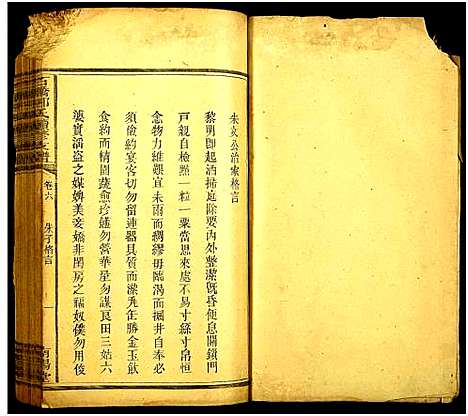 朱文公治家格言
黎明即起洒掃庭除要內外整潔既昏便息關鎖門
戸親自檢點一粒一粟當思來處不易寸絲寸帛恒
念物力維艱宜未雨而綢繆毋臨渴而掘井自奉必
須儉約宴客切勿留連器具質而潔凡缶勝金玉飲
食約而精園蔬愈珍饈勿營華屋勿謀良田三姑六
婆實滛盜之媒婢美妾嬌非閨房之福奴僕勿用俊
氏
卷六
朱子格言
一
南陽堂